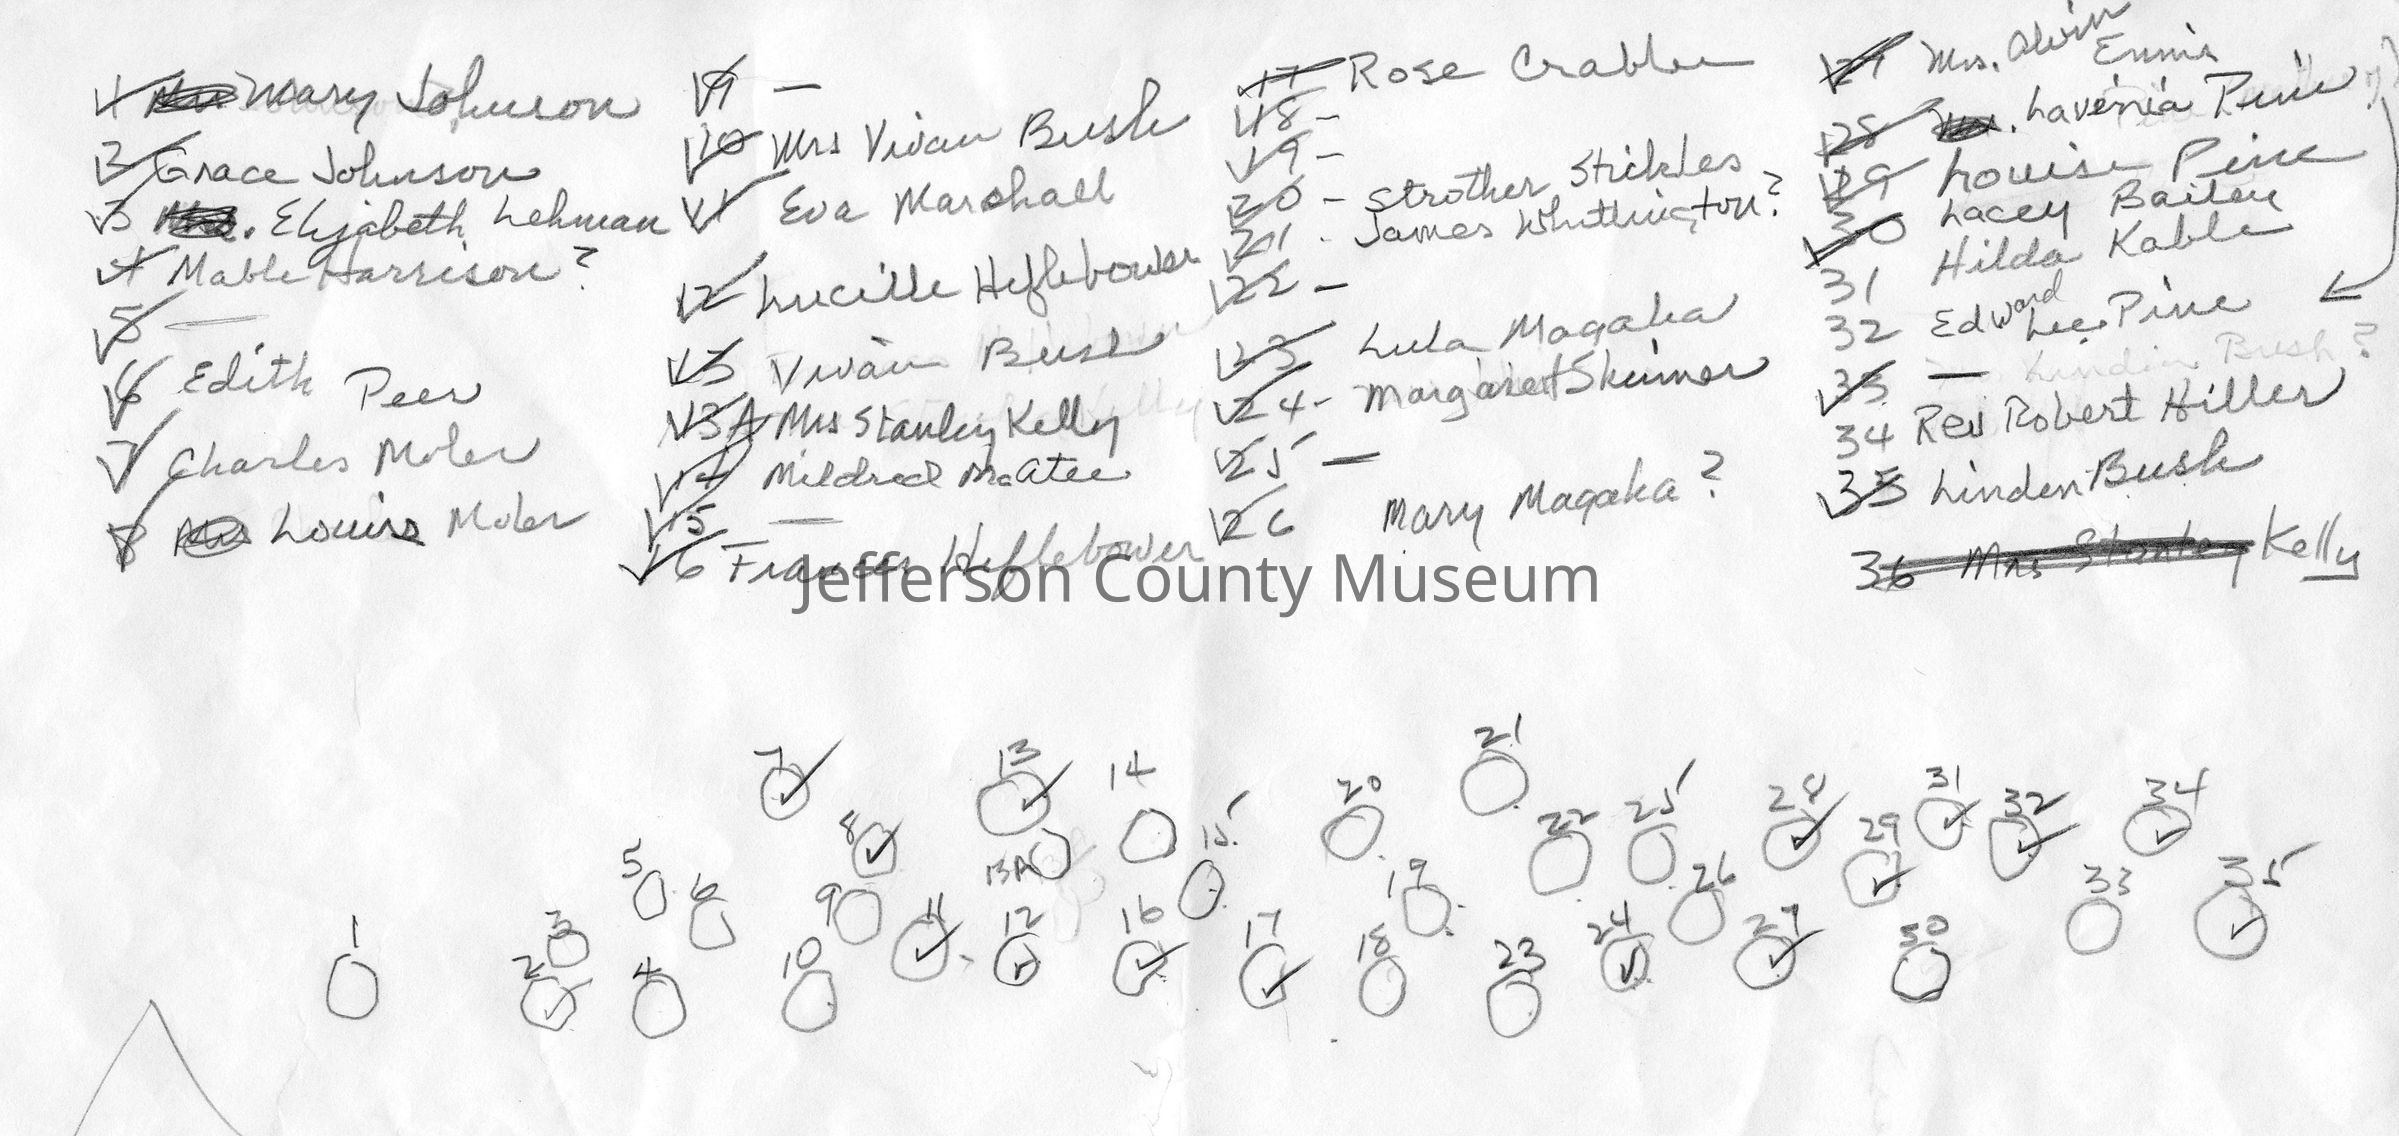 1 Mary Johnson
2 Grace Johnson
3 . Elizabeth Lehman
4 Mable Harrison ?
5 —
6 Edith Peer
7 Charles Moler
8 Louise Moler
9 —
10 Mrs Vivan Bush
11 Eva Marshall
12 Lucille Heflebower
13 Vivan Bush
13A Mrs Stanley Kelly
14 Mildred McAtee
15 —
16 Frances Heflebower
17 Rose Crable
18 -
19 -
20 - Strother Strikles
21 - James Whittington ?
22 -
23 Lula Magaha
24 - Margaret Skinner
25 —
26 Mary Magaha ?
27 Mrs. Alvin Ennis
28 . Lavenia Pine
29 Louise Pine
30 Lacey Bailey
31 Hilda Kable
32 Edward Lee Pine
33 — Linden Bush ?
34 Rev Robert Hiller
35 Linden Bush
36 Mrs Stanley Kelly
Jefferson County Museum
21
7 13 14 20 22 25 28 31 32 34
8 15 29
5 6 13A 19 26 33 35
1 3 9 11 12 16 17 18 24 27 30
2 4 10 23